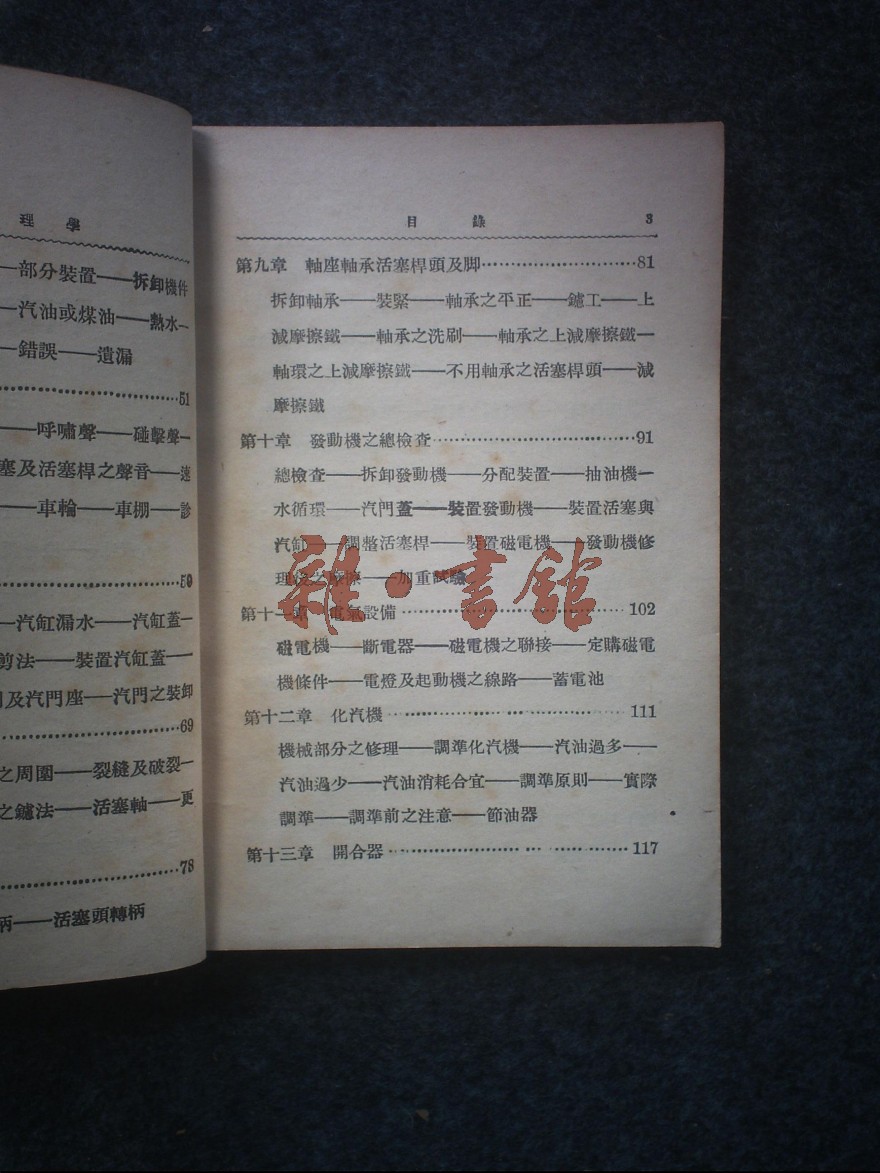 理學
一部分裝置——拆卸機件
一汽油或煤油——熱水一
一錯誤——遺漏
51
——呼嘯聲——碰擊聲一
塞及活塞桿之聲音——速
——車輪——車棚——診
59
一汽缸漏水——汽缸蓋一
剪法——裝置汽缸蓋——
及汽門座——汽門之裝卸
69
之周圍——裂縫及破裂一
之鑢法——活塞軸——更
78
柄——活塞頭轉柄
目錄 3
第九章 軸座軸承活塞桿頭及脚 81
拆卸軸承——裝緊——軸承之平正——鑢工——上
減摩擦鐵——軸承之洗刷——軸承之上減摩擦鐵一
軸環之上減摩擦鐵——不用軸承之活塞桿頭——減
摩擦鐵
第十章 發動機之總檢查 91
總檢查——拆卸發動機——分配裝置——抽油機一
水循環——汽門蓋——裝置發動機——裝置活塞與
汽缸——調整活塞桿——裝置磁電機——發動機修
理後之摩擦——加重試驗
雜·書館
第十一章 電氣設備 102
磁電機——斷電器——磁電機之聯接——定購磁電
機條件——電燈及起動機之線路——蓄電池
第十二章 化汽機 111
機械部分之修理——調準化汽機——汽油過多——
汽油過少——汽油消耗合宜——調準原則——實際
調準——調準前之注意——節油器
第十三章 開合器 117